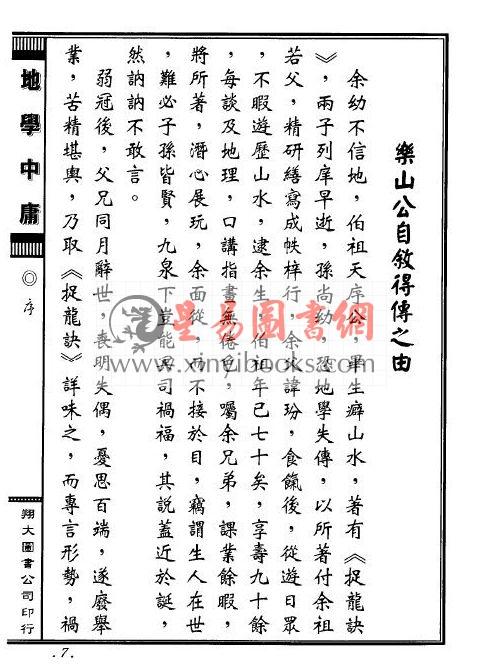 樂山公自敘得傳之由
余幼不信地，伯祖天庠公，畢生癖山水，著有《捉龍訣
》，兩子列庠早逝，孫尚幼，恐地學失傳，以所著付余祖
若父，精研繕寫成帙梓行，余父諱玢，食餼後，從遊日眾
，不暇遊歷山水，逮余生，伯祖年已七十矣，享壽九十餘
，每談及地理，口講指畫無倦色，囑余兄弟，課業餘暇，
將所著，潛心展玩，余面從，而不接於目，竊謂生人在世
，難必子孫皆賢，九泉下豈能再司禍福，其說蓋近於誕，
然訥訥不敢言。
弱冠後，父兄同月辭世，喪明失偶，憂思百端，遂廢舉
業，苦精堪輿，乃取《捉龍訣》詳味之，而專言形勢，禍
地學中庸
◎序
翔大圖書公司印行
.7.
星易圖書網
www.xinyibooks.com